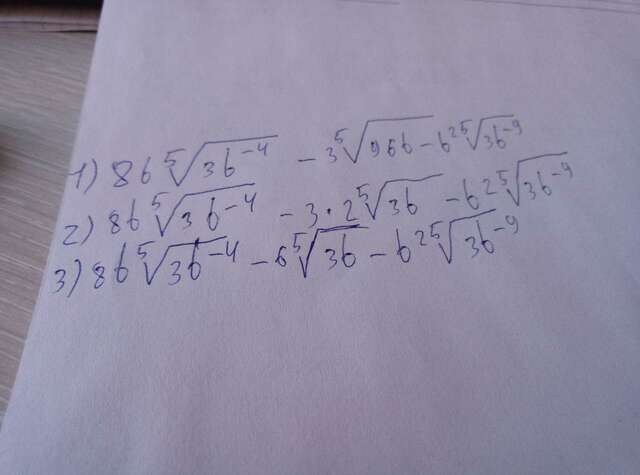 1) 8b ⁵√(3b⁻⁴) - 3 ⁵√(96b) - b² ⁵√(3b⁻⁹)
2) 8b ⁵√(3b⁻⁴) - 3·2 ⁵√(3b) - b² ⁵√(3b⁻⁹)
3) 8b ⁵√(3b⁻⁴) - 6 ⁵√(3b) - b² ⁵√(3b⁻⁹)